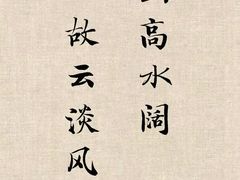 高水阔
故云淡风